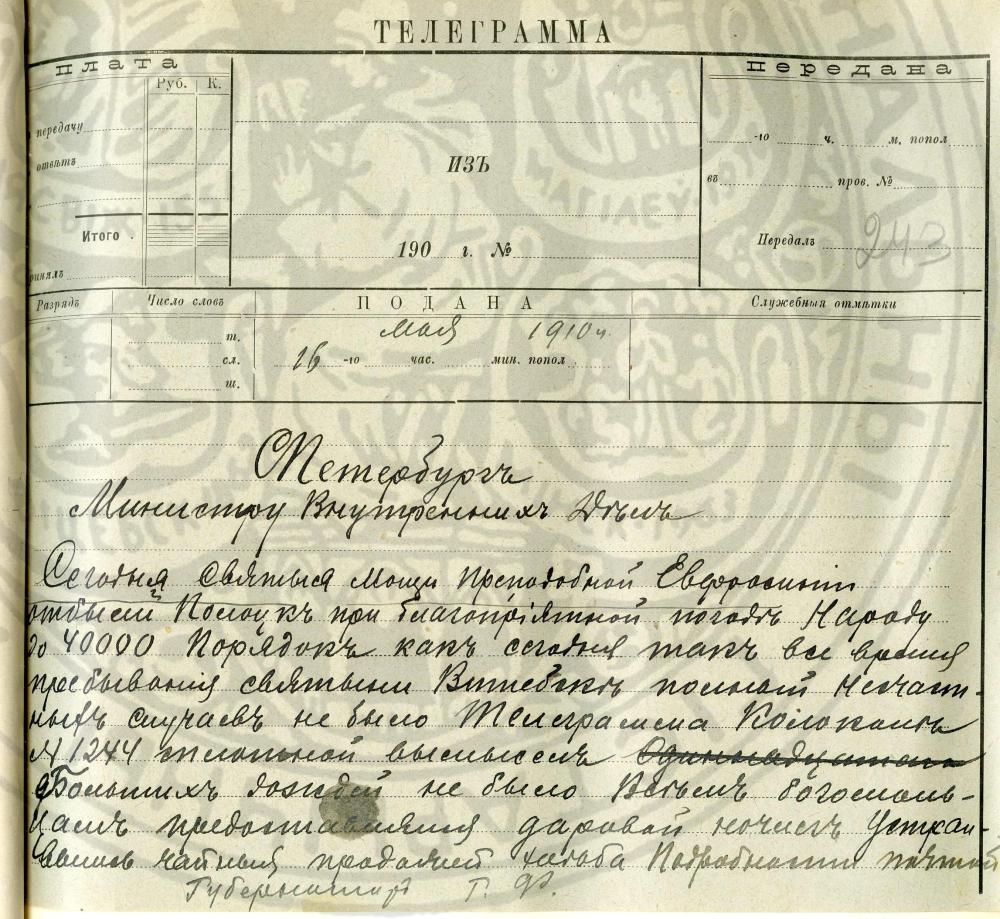 ТЕЛЕГРАММА
плата
Руб. К.
передачу
отвѣтъ
Итого
ринялъ
ИЗЪ
190 г. №
передана
-го ч. м. попол
въ пров. №
Передалъ 243
Разрядъ
Число словъ
ПОДАНА
Служебныя отмѣтки
т.
сл.
ш.
Мая 1910 г.
16 -го час. мин. попол
СПетербургъ
Министру Внутреннихъ Дѣлъ
Сегодня святыя мощи Преподобной Евфросиніи
отбыли Полоцкъ при благопріятной погодѣ Народу
до 40000 Порядокъ какъ сегодня такъ все время
пребыванія святыни Витебскѣ полный Несчаст-
ныхъ случаевъ не было Телеграмма
№ 1244 высылкѣ
Большихъ дождей не было Всѣмъ богомоль-
цамъ даровой ночлегъ Устраи-
вались чайныя хлѣба Подробности почтой
Губернаторъ Г. Ф.